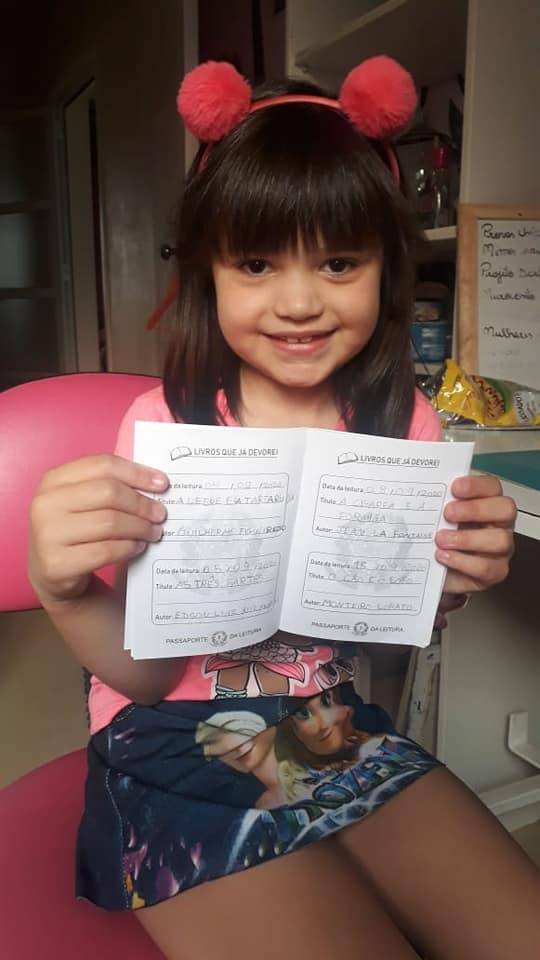 LIVROS QUE JÁ DEVOREI
Data da leitura: 04 / 09 / 2020
Título: A LEBRE E A TARTARUGA
Autor: GUILHERME FIGUEIREDO
Data da leitura: 05 / 09 / 2020
Título: AS TRÊS PARTES
Autor: EDSON LUIZ
PASSAPORTE DA LEITURA
LIVROS QUE JÁ DEVOREI
Data da leitura: 08 / 09 / 2020
Título: A CIGARRA E A
FORMIGA
Autor: JEAN LA FONTAINE
Data da leitura: 15 / 09 / 2020
Título: O
Autor: MONTEIRO LOBATO
PASSAPORTE DA LEITURA
Projeto
Mulheres